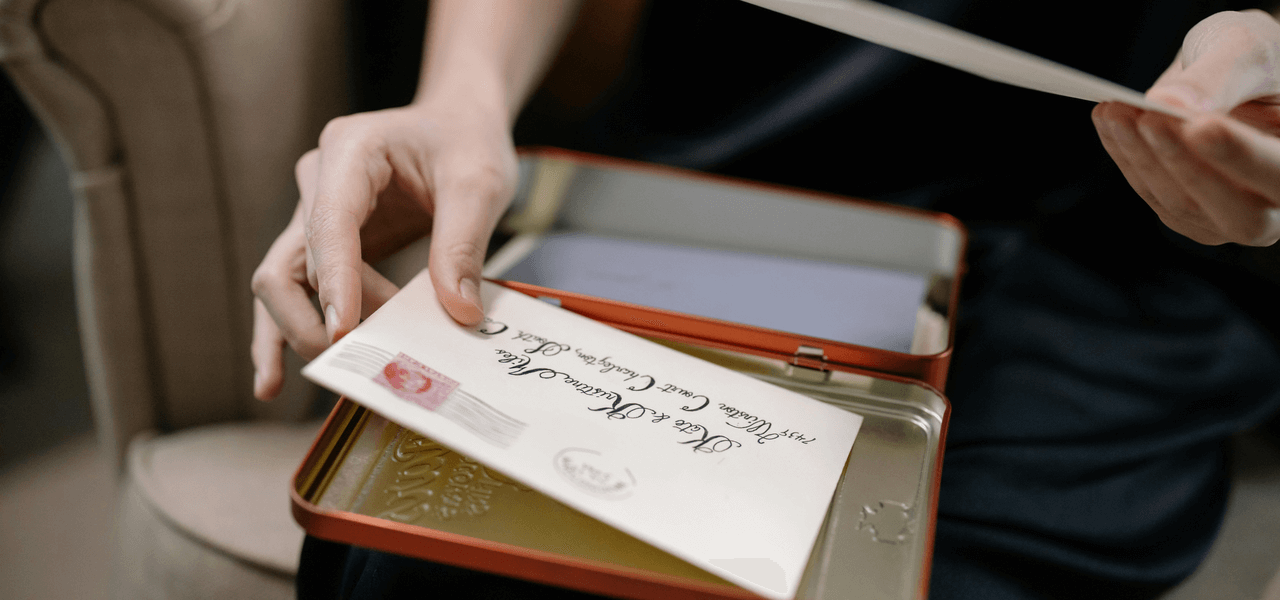 Kate & Kristine Myles
7439 Winston Court Charleston, South C